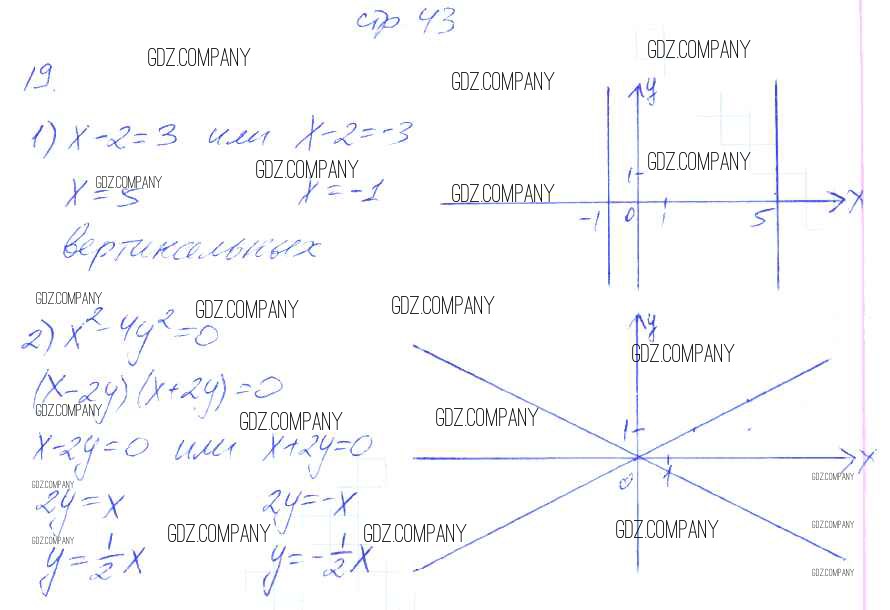 стр 43
GDZ.COMPANY GDZ.COMPANY
19. GDZ.COMPANY
1) x-2=3 или x-2=-3
GDZ.COMPANY GDZ.COMPANY
x=5 x=-1
GDZ.COMPANY GDZ.COMPANY
y
1
-1 0 1 5 x
вертикальных
GDZ.COMPANY GDZ.COMPANY GDZ.COMPANY
2) x²-4y²=0
(x-2y)(x+2y)=0
GDZ.COMPANY GDZ.COMPANY GDZ.COMPANY
x-2y=0 или x+2y=0
GDZ.COMPANY
2y=x 2y=-x
GDZ.COMPANY GDZ.COMPANY GDZ.COMPANY
y=1/2x y=-1/2x
y
GDZ.COMPANY
1
0 1 x
GDZ.COMPANY
GDZ.COMPANY
GDZ.COMPANY
GDZ.COMPANY